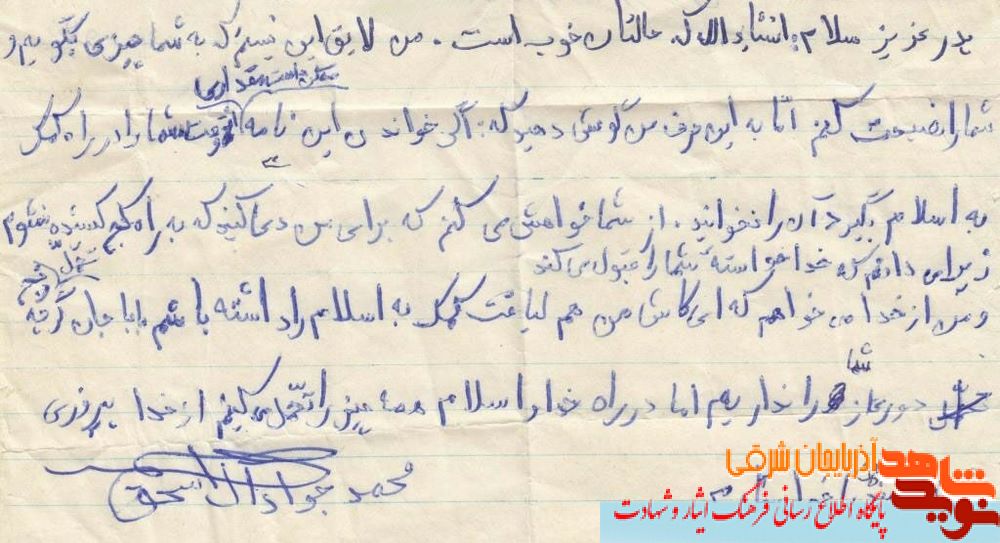 پدر عزیز سلام انشاءالله که حالتان خوب است. من لایق این نیستم که به شما چیزی بگویم و
شما را نصیحت کنم امّا به این حرف من گوش دهید که: اگر خواندن این نامه ممکن است مقداری وقت شما را در راه کمک
به اسلام بگیرد آن را نخوانید. از شما خواهش می کنم که برای من دعا کنید که به راه کج کشیده نشوم
زیرا می دانم که خدا خواسته شما را قبول می کند
و من از خدا می خواهم که ای کاش من هم لیاقت کمک به اسلام را داشته باشم بابا جان گرچه تحمّل
دوری از شما را نداریم اما در راه خدا و اسلام همه چیز را تحمّل می کنیم از خدا پیروزی
محمد جواد آل اسحق
شاهد
نوید
آذربایجان شرقی
پایگاه اطلاع رسانی فرهنگ ایثار و شهادت